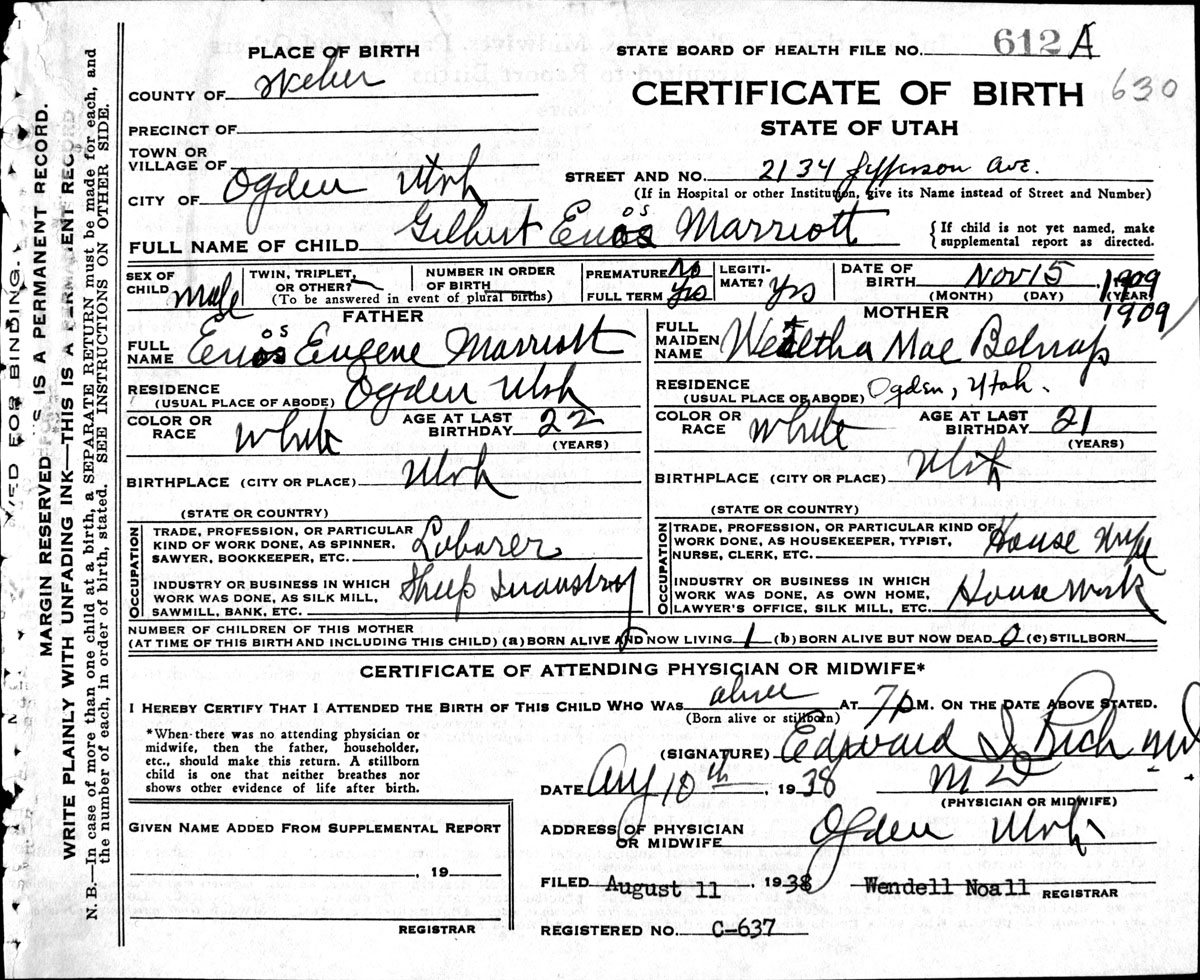 PLACE OF BIRTH
STATE BOARD OF HEALTH FILE NO. 612 A
COUNTY OF Weber
CERTIFICATE OF BIRTH 630
PRECINCT OF
STATE OF UTAH
TOWN OR
VILLAGE OF
STREET AND NO. 2134 Jefferson Ave.
CITY OF Ogden Utah
(If in Hospital or other Institution, give its Name instead of Street and Number)
FULL NAME OF CHILD Gilbert Enos Marriott
os
{ If child is not yet named, make
supplemental report as directed.
SEX OF
CHILD Male
TWIN, TRIPLET,
OR OTHER?
NUMBER IN ORDER
OF BIRTH
(To be answered in event of plural births)
PREMATURE No
FULL TERM Yes
LEGITI-
MATE? Yes
DATE OF
BIRTH Nov 15, 1909
(MONTH) (DAY) (YEAR)
1909
FATHER
FULL
NAME Enos Eugene Marriott
os
RESIDENCE
(USUAL PLACE OF ABODE) Ogden Utah
COLOR OR
RACE White
AGE AT LAST
BIRTHDAY 22
(YEARS)
BIRTHPLACE (CITY OR PLACE) Utah
(STATE OR COUNTRY)
OCCUPATION
TRADE, PROFESSION, OR PARTICULAR
KIND OF WORK DONE, AS SPINNER,
SAWYER, BOOKKEEPER, ETC. Laborer
INDUSTRY OR BUSINESS IN WHICH
WORK WAS DONE, AS SILK MILL,
SAWMILL, BANK, ETC. Sheep Industry
MOTHER
FULL
MAIDEN
NAME Mae Belnap
RESIDENCE
(USUAL PLACE OF ABODE) Ogden, Utah.
COLOR OR
RACE White
AGE AT LAST
BIRTHDAY 21
(YEARS)
BIRTHPLACE (CITY OR PLACE) Utah
(STATE OR COUNTRY)
OCCUPATION
TRADE, PROFESSION, OR PARTICULAR KIND OF
WORK DONE, AS HOUSEKEEPER, TYPIST,
NURSE, CLERK, ETC. House Wife
INDUSTRY OR BUSINESS IN WHICH
WORK WAS DONE, AS OWN HOME,
LAWYER'S OFFICE, SILK MILL, ETC. House Work
NUMBER OF CHILDREN OF THIS MOTHER
(AT TIME OF THIS BIRTH AND INCLUDING THIS CHILD) (a) BORN ALIVE AND NOW LIVING 1 (b) BORN ALIVE BUT NOW DEAD 0 (c) STILLBORN
CERTIFICATE OF ATTENDING PHYSICIAN OR MIDWIFE*
I HEREBY CERTIFY THAT I ATTENDED THE BIRTH OF THIS CHILD WHO WAS alive AT 7 P M. ON THE DATE ABOVE STATED.
(Born alive or stillborn)
*When there was no attending physician or
midwife, then the father, householder,
etc., should make this return. A stillborn
child is one that neither breathes nor
shows other evidence of life after birth.
(SIGNATURE) Edward I Rich MD
DATE Aug 10th, 1938 MD
(PHYSICIAN OR MIDWIFE)
GIVEN NAME ADDED FROM SUPPLEMENTAL REPORT
, 19
REGISTRAR
ADDRESS OF PHYSICIAN
OR MIDWIFE Ogden Utah
FILED August 11, 1938 Wendell Noall REGISTRAR
REGISTERED NO. C-637
MARGIN RESERVED FOR BINDING.
WRITE PLAINLY WITH UNFADING INK—THIS IS A PERMANENT RECORD.
N. B.—In case of more than one child at a birth, a SEPARATE RETURN must be made for each, and
the number of each, in order of birth, stated. SEE INSTRUCTIONS ON OTHER SIDE.